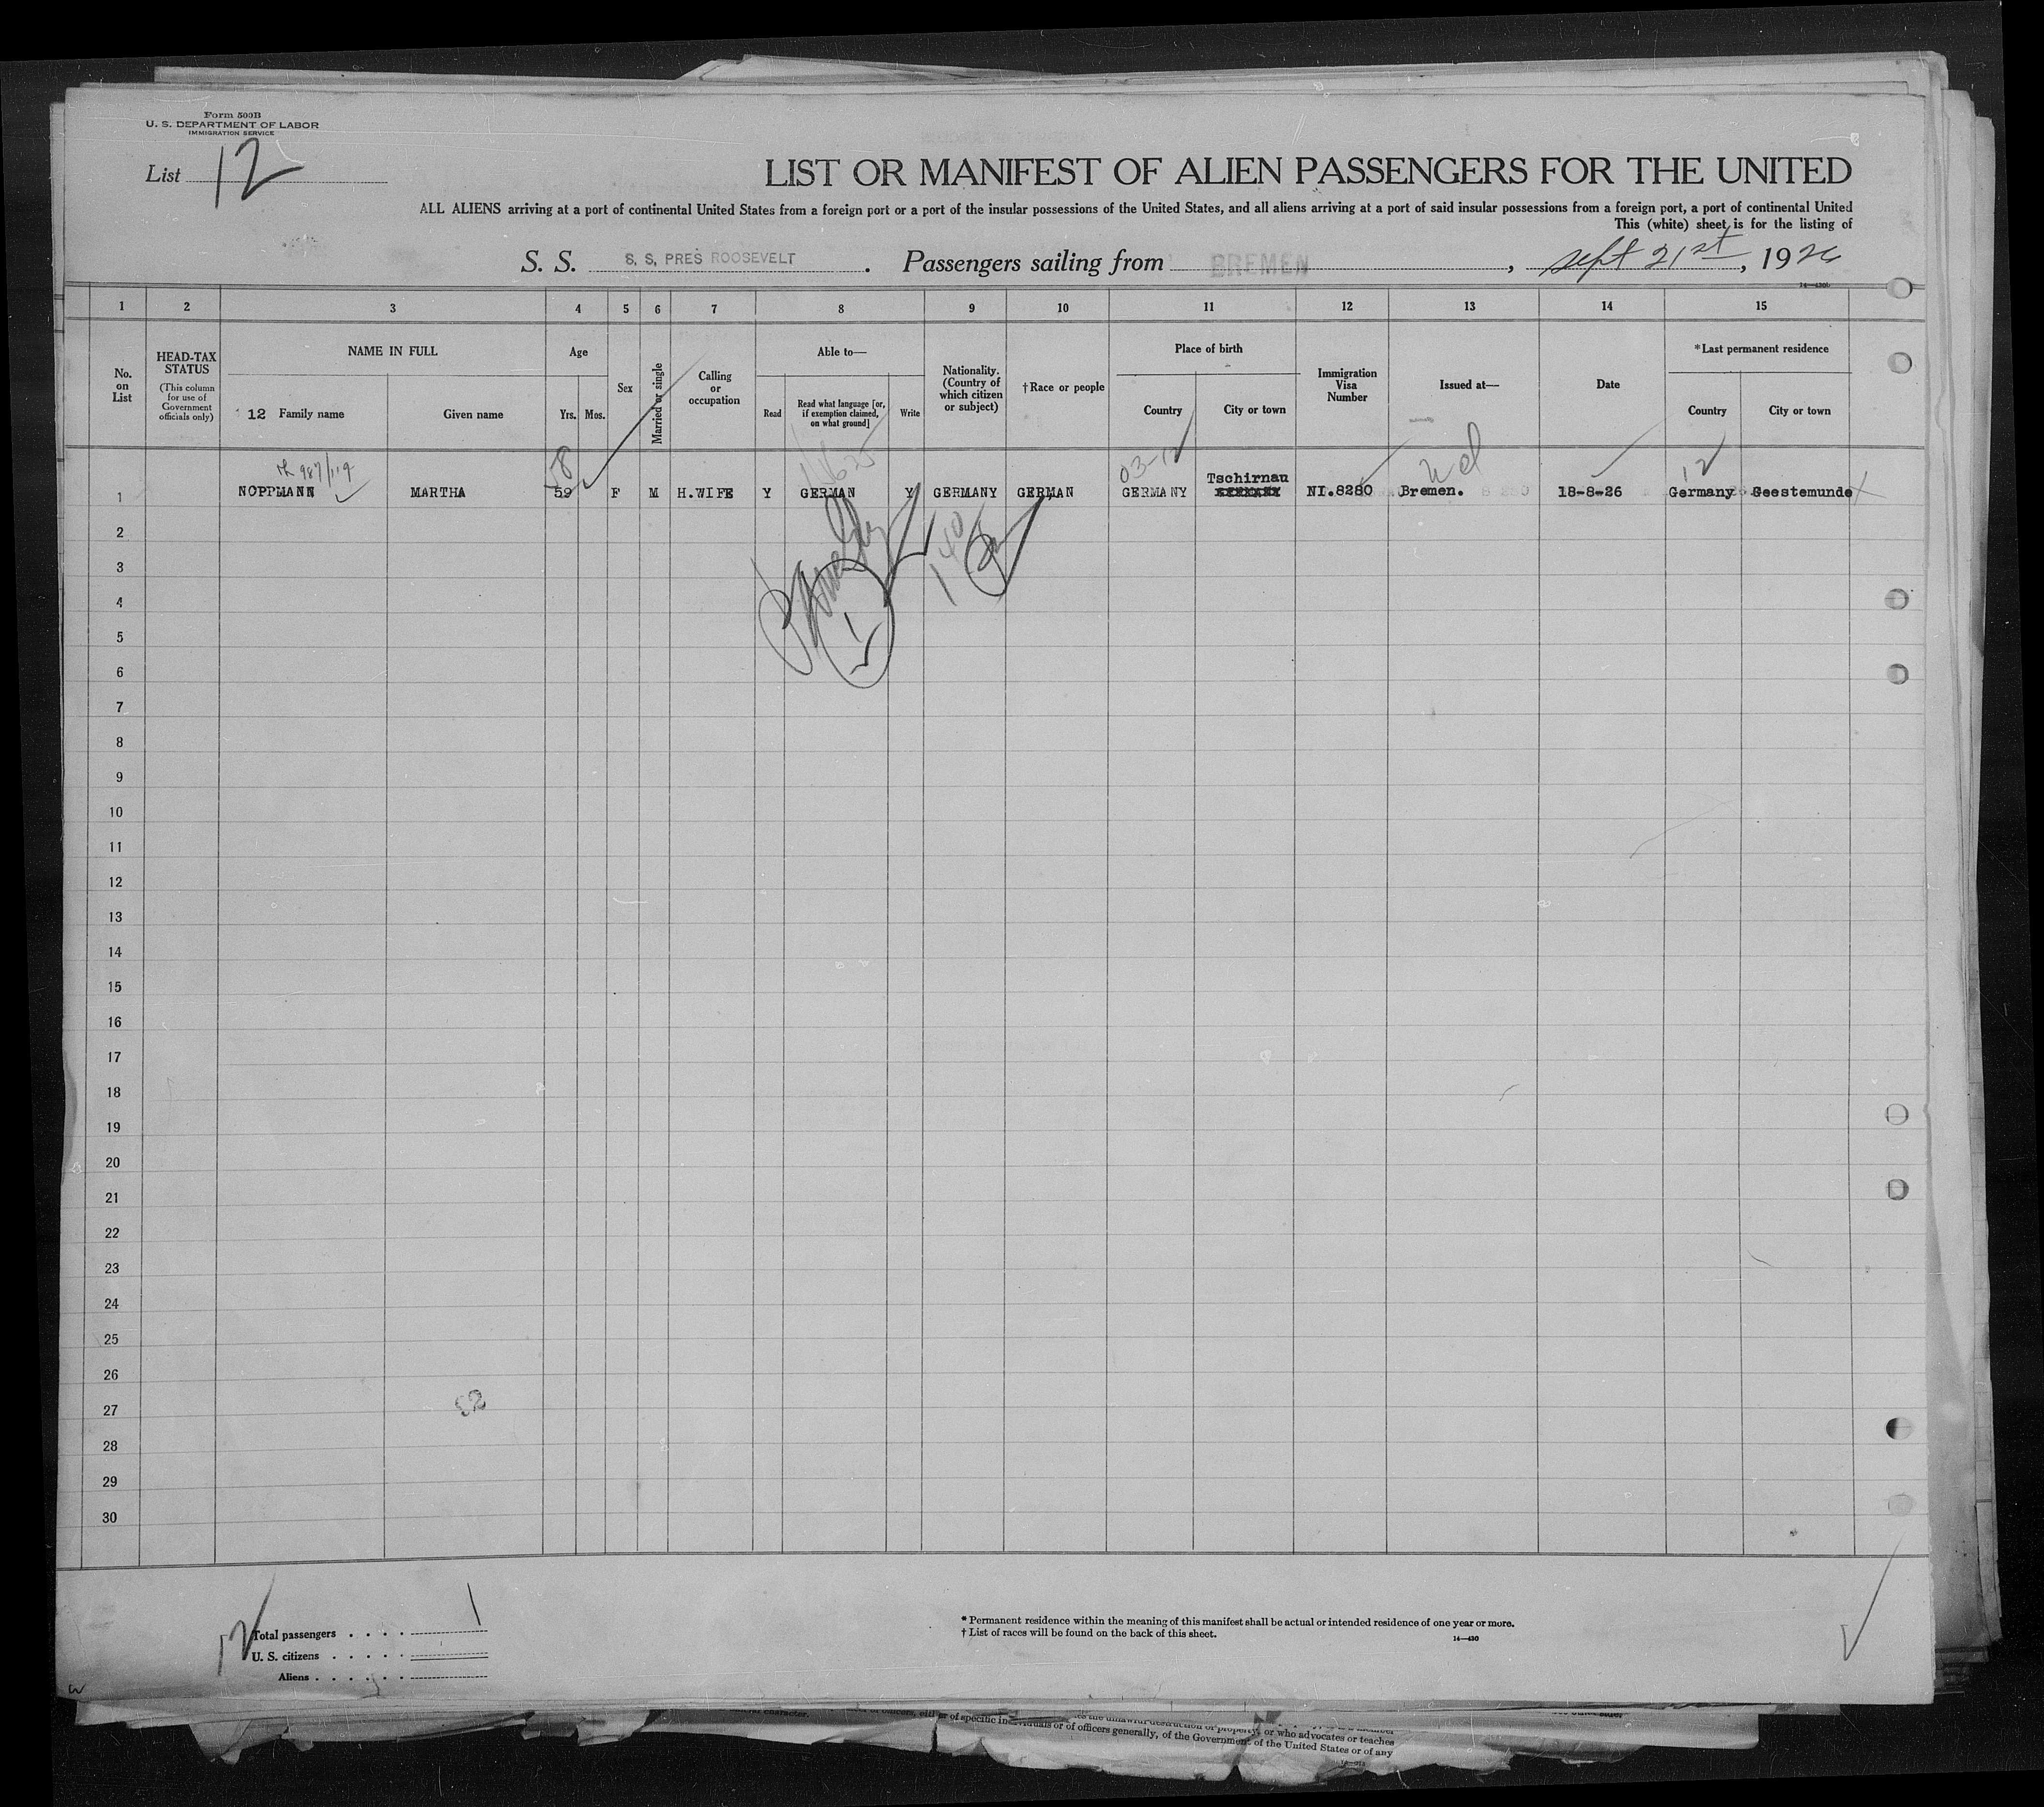 Form 500B
U. S. DEPARTMENT OF LABOR
IMMIGRATION SERVICE
List 12
LIST OR MANIFEST OF ALIEN PASSENGERS FOR THE UNITED
ALL ALIENS arriving at a port of continental United States from a foreign port or a port of the insular possessions of the United States, and all aliens arriving at a port of said insular possessions from a foreign port, a port of continental United
This (white) sheet is for the listing of
S. S. S. S. PRES ROOSEVELT . Passengers sailing from BREMEN , Sept 21st, 1926
1 2 3 4 5 6 7 8 9 10 11 12 13 14 15
No. on List
HEAD-TAX STATUS
(This column for use of Government officials only)
NAME IN FULL
12 Family name
Given name
Age
Yrs. Mos.
Sex
Married or single
Calling or occupation
Able to—
Read
Read what language [or, if exemption claimed, on what ground]
Write
Nationality. (Country of which citizen or subject)
†Race or people
Place of birth
Country
City or town
Immigration Visa Number
Issued at—
Date
*Last permanent residence
Country
City or town
58 03-12 12
Tschirnau
1 NOPPMANN MARTHA 59 F M H.WIFE Y GERMAN Y GERMANY GERMAN GERMANY NI.8280 Bremen. 18-8-26 Germany Geestemunde
2
3
4
5
6
7
8
9
10
11
12
13
14
15
16
17
18
19
20
21
22
23
24
25
26
27
28
29
30
12
Total passengers . . . . 1
U. S. citizens . . . . .
Aliens . . . . . .
* Permanent residence within the meaning of this manifest shall be actual or intended residence of one year or more.
† List of races will be found on the back of this sheet.
14—430
or of officers generally, of the Government of the United States or of any